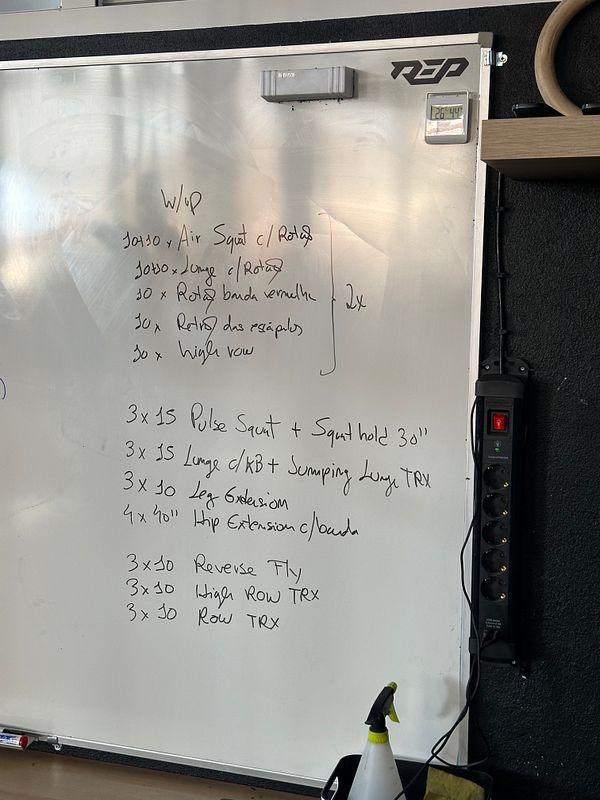 REP
26 44
W/up
10+10 x Air Squat c/ Rotação
10+10 x Lunge c/ Rotação
10 x Rotação banda vermelha
10 x Retração das escápulas
10 x high row
2x
3 x 15 Pulse Squat + Squat hold 30"
3 x 15 Lunge c/KB + Jumping Lunge TRX
3 x 10 Leg Extension
4 x 40" Hip Extension c/banda
3 x 10 Reverse Fly
3 x 10 High Row TRX
3 x 10 Row TRX